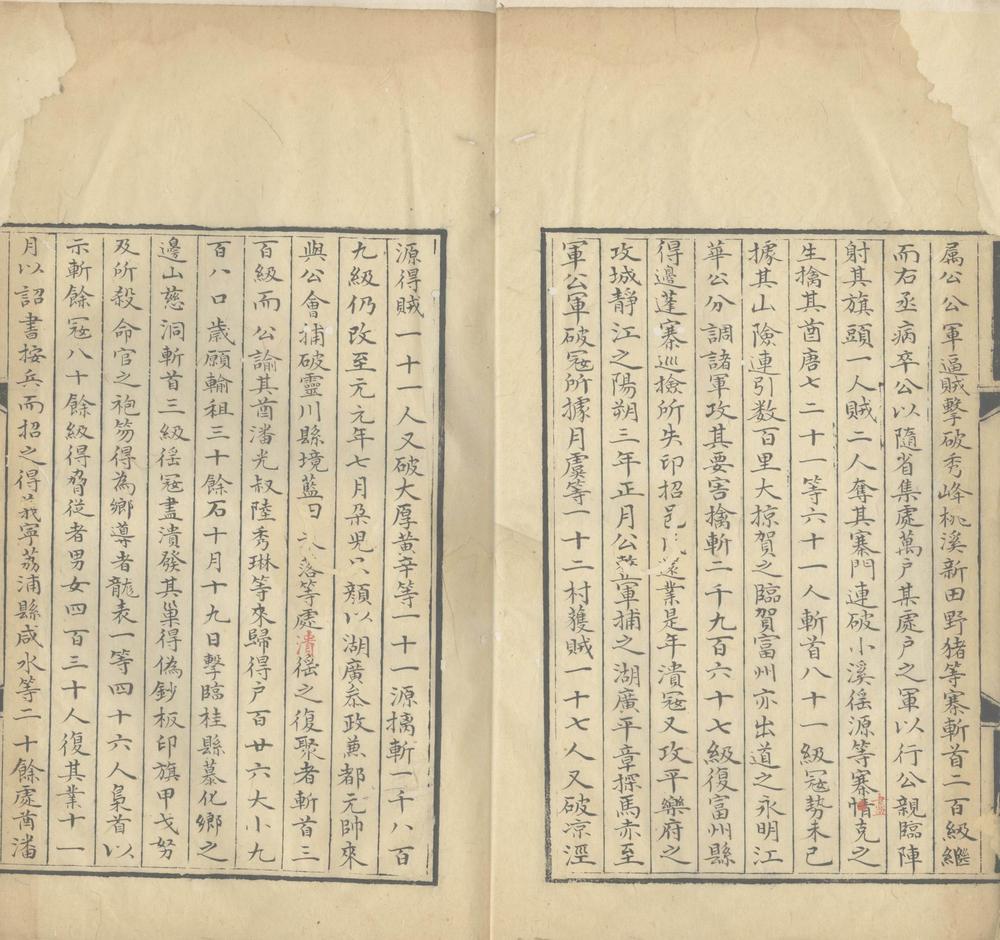 属公公軍逼賊擊破秀峰桃溪新田野猪等寨斬首二百級繼
而右丞病卒公以隨省集處萬戶某處戶之軍以行公親臨陣
射其旗頭一人賊二人奪其寨門連破小溪徭源等寨惰克之
盡
生擒其酋唐七二十一等六十一人斬首八十一級冦勢未已
據其山險連引数百里大掠賀之臨賀富州亦出道之永明江
華公分調諸軍攻其要害擒斬二千九百六十七級復富州縣
得邊蓬寨巡撿所失印招邑民還業是年潰冦又攻平樂府之
攻城靜江之陽朔三年正月公整軍捕之湖廣平章探馬赤至
軍公軍破冦所據月虞等一十二村獲賊一十七人又破凉涇
源得賊一十一人又破大厚黄辛等一十一源擒斬一千八百
九級仍改至元元年七月朶兒只顏以湖廣叅政蒹都元帥來
與公會捕破靈川縣境藍日落等處潰徭之復聚者斬首三
百級而公諭其酋潘光叔陸秀琳等來歸得户百廿六大小九
百八口歲願輸租三十餘石十月十九日擊臨桂縣慕化鄉之
邊山慈洞斬首三級徭冦盡潰發其巢得偽鈔板印旗甲戈弩
及所殺命官之袍笏得為鄉導者龍表一等四十六人梟首以
示斬餘冦八十餘級得脅從者男女四百三十人復其業十一
月以詔書按兵而招之得義寧荔浦縣咸水等二十餘處酋潘